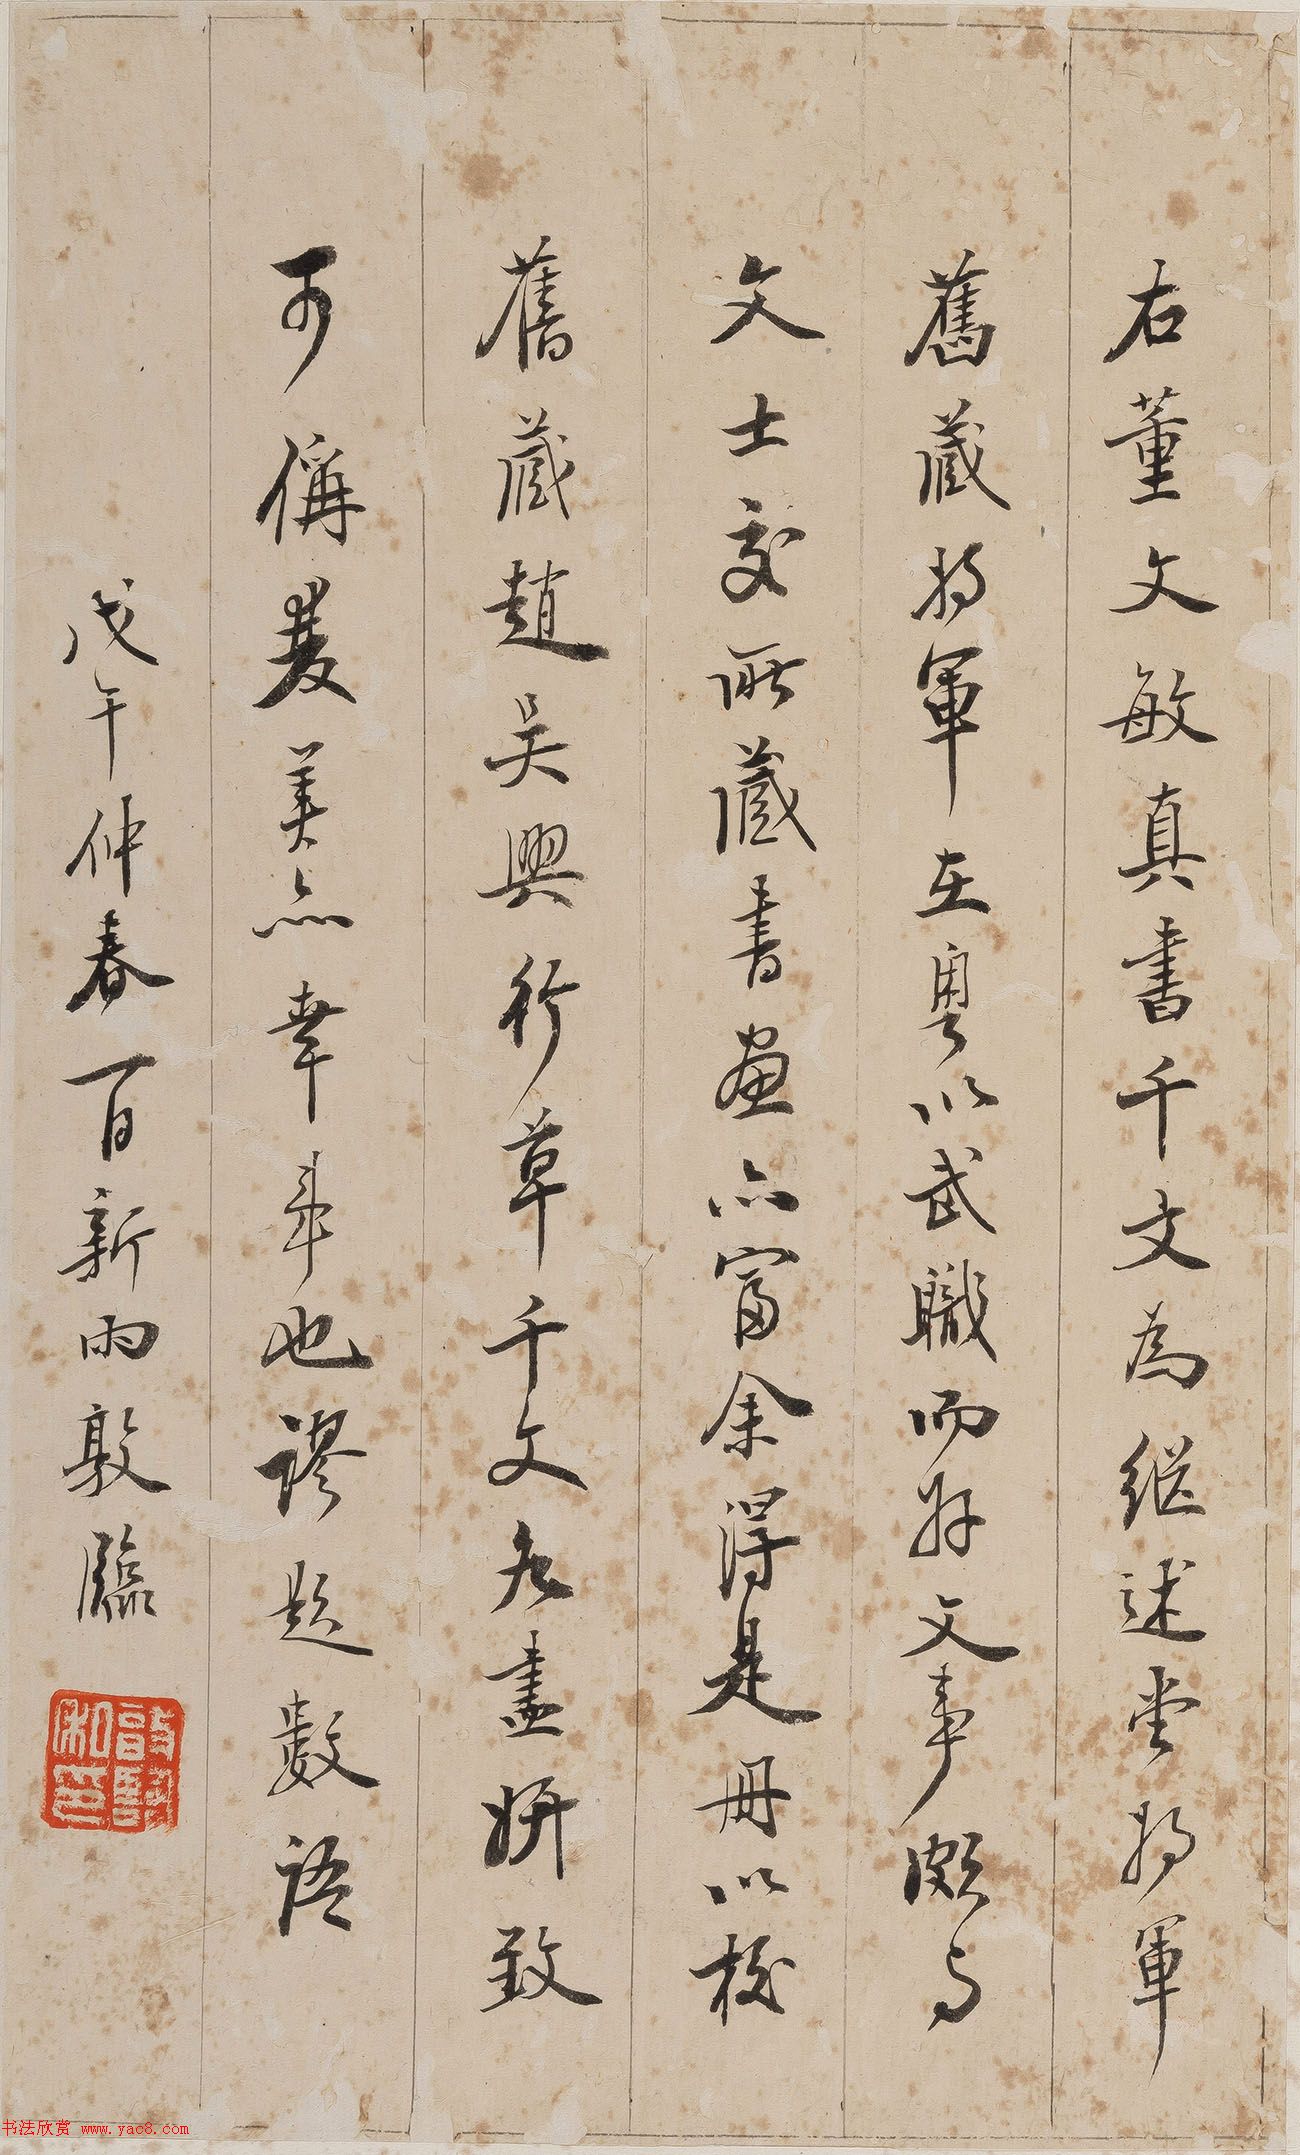 右董文敏真書千文為继述堂将軍
舊藏将軍在粵以武職而好文事頗与
文士交所藏書画亦富余得是冊以校
舊藏趙吴興行草千文各盡妍致
可稱雙美亦幸事也謬題數語
戊午仲春百新雨敦臨
书法欣赏 www.yac8.com